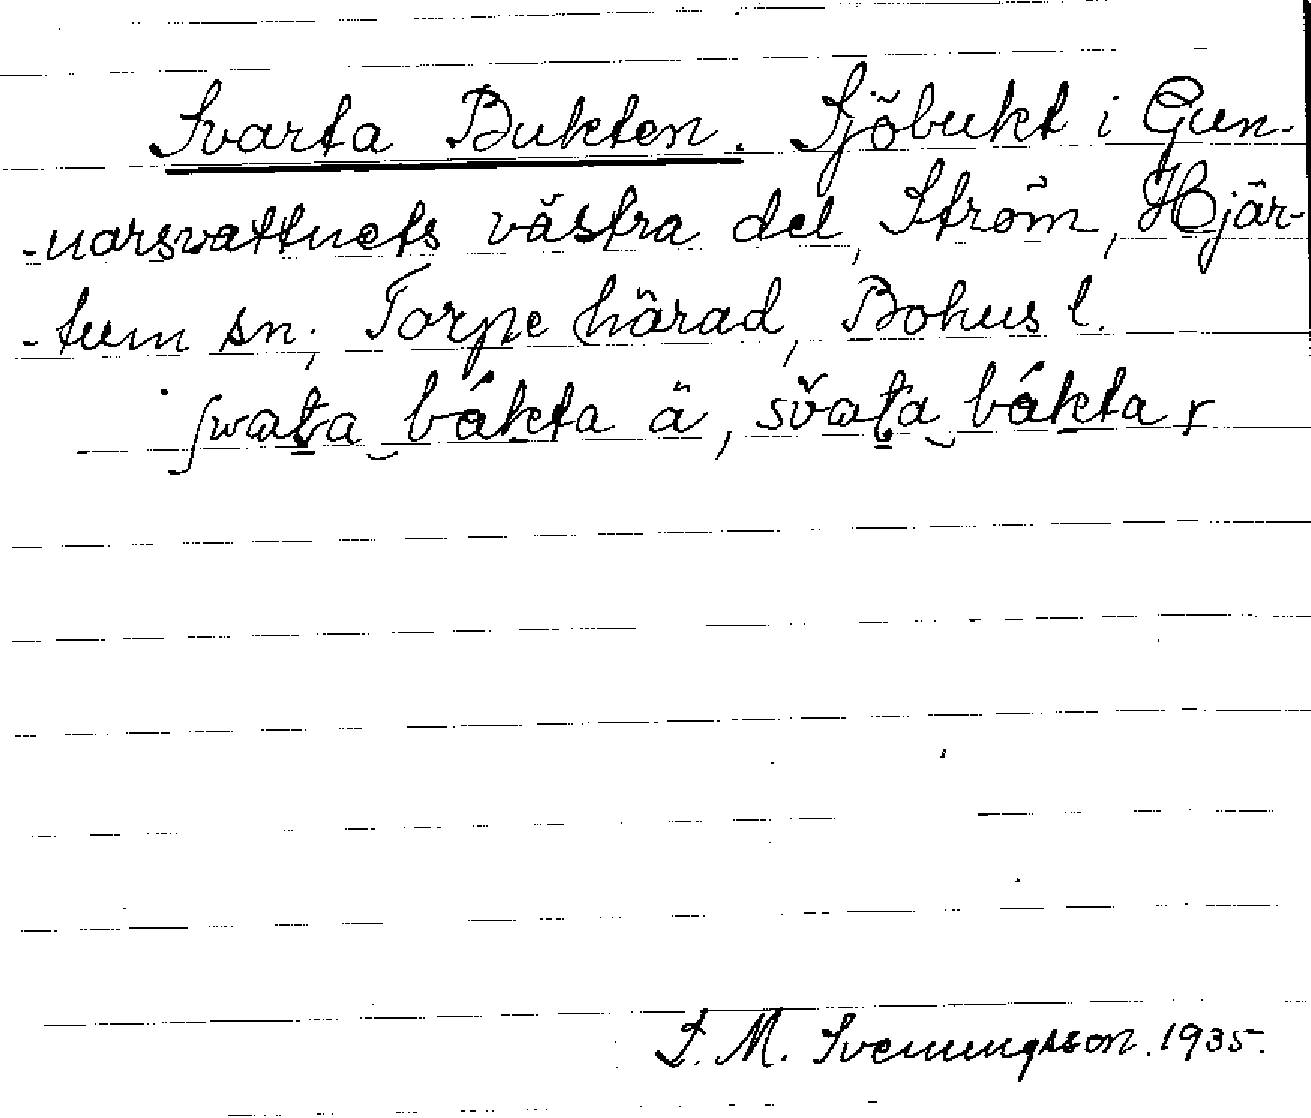 Svarta Bukten. Sjöbukt i Gun-
-narsvattnets västra del, Ström, Hjär-
-tum sn; Torpe härad, Bohus l.
ʃwata bákta ä, svata bákta r
J. M. Svenungsson. 1935.